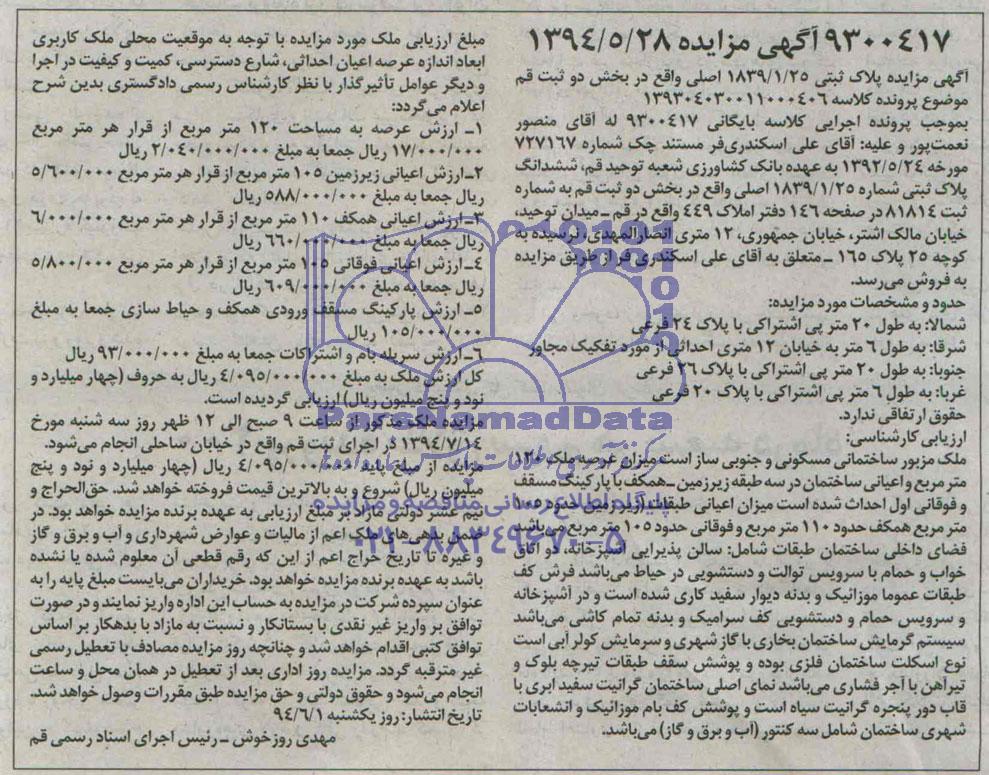 ۹۳۰۰۴۱۷ آگهی مزایده ۱۳۹۴/۵/۲۸
آگهی مزایده پلاک ثبتی ۱۸۳۹/۱/۲۵ اصلی واقع در بخش دو ثبت قم
موضوع پرونده کلاسه ۱۳۹۳۰۴۰۳۰۰۱۱۰۰۰۴۰۶
بموجب پرونده اجرایی کلاسه بایگانی ۹۳۰۰۴۱۷ له آقای منصور
نعمت‌پور و علیه: آقای علی اسکندری‌فر مستند چک شماره ۷۲۷۱۶۷
مورخه ۱۳۹۲/۵/۲۴ به عهده بانک کشاورزی شعبه توحید قم، ششدانگ
پلاک ثبتی شماره ۱۸۳۹/۱/۲۵ اصلی واقع در بخش دو ثبت قم به شماره
ثبت ۸۱۸۱۴ در صفحه ۱۴۶ دفتر املاک ۴۴۹ واقع در قم ـ میدان توحید،
خیابان مالک اشتر، خیابان جمهوری، ۱۲ متری انصارالمهدی، نرسیده به
کوچه ۲۵ پلاک ۱۶۵ ـ متعلق به آقای علی اسکندری فر از طریق مزایده
به فروش می‌رسد.
حدود و مشخصات مورد مزایده:
شمالا: به طول ۲۰ متر پی اشتراکی با پلاک ۲۴ فرعی
شرقا: به طول ۶ متر به خیابان ۱۲ متری احداثی از مورد تفکیک مجاور
جنوبا: به طول ۲۰ متر پی اشتراکی با پلاک ۲۶ فرعی
غربا: به طول ۶ متر پی اشتراکی با پلاک ۲۰ فرعی
حقوق ارتفاقی ندارد.
ارزیابی کارشناسی:
ملک مزبور ساختمانی مسکونی و جنوبی ساز است میزان عرصه ملک ۱۲۰
متر مربع و اعیانی ساختمان در سه طبقه زیرزمین ـ همکف با پارکینگ مسقف
و فوقانی اول احداث شده است میزان اعیانی طبقات زیرزمین حدود ۱۰۵
متر مربع همکف حدود ۱۱۰ متر مربع و فوقانی حدود ۱۰۵ متر مربع می‌باشد
فضای داخلی ساختمان طبقات شامل: سالن پذیرایی آشپزخانه، دو اتاق
خواب و حمام با سرویس توالت و دستشویی در حیاط می‌باشد فرش کف
طبقات عموما موزائیک و بدنه دیوار سفید کاری شده است و در آشپزخانه
و سرویس حمام و دستشویی کف سرامیک و بدنه تمام کاشی می‌باشد
سیستم گرمایش ساختمان بخاری با گاز شهری و سرمایش کولر آبی است
نوع اسکلت ساختمان فلزی بوده و پوشش سقف طبقات تیرچه بلوک و
تیرآهن با آجر فشاری می‌باشد نمای اصلی ساختمان گرانیت سفید ابری با
قاب دور پنجره گرانیت سیاه است و پوشش کف بام موزائیک و انشعابات
شهری ساختمان شامل سه کنتور (آب و برق و گاز) می‌باشد.
مبلغ ارزیابی ملک مورد مزایده با توجه به موقعیت محلی ملک کاربری
ابعاد اندازه عرصه اعیان احداثی، شارع دسترسی، کمیت و کیفیت در اجرا
و دیگر عوامل تأثیرگذار با نظر کارشناس رسمی دادگستری بدین شرح
اعلام می‌گردد:
۱ـ ارزش عرصه به مساحت ۱۲۰ متر مربع از قرار هر متر مربع
۱۷/۰۰۰/۰۰۰ ریال جمعا به مبلغ ۲/۰۴۰/۰۰۰/۰۰۰ ریال
۲ـ ارزش اعیانی زیرزمین ۱۰۵ متر مربع از قرار هر متر مربع ۵/۶۰۰/۰۰۰
ریال جمعا به مبلغ ۵۸۸/۰۰۰/۰۰۰ ریال
۳ـ ارزش اعیانی همکف ۱۱۰ متر مربع از قرار هر متر مربع ۶/۰۰۰/۰۰۰
ریال جمعا به مبلغ ۶۶۰/۰۰۰/۰۰۰ ریال
۴ـ ارزش اعیانی فوقانی ۱۰۵ متر مربع از قرار هر متر مربع ۵/۸۰۰/۰۰۰
ریال جمعا به مبلغ ۶۰۹/۰۰۰/۰۰۰ ریال
۵ـ ارزش پارکینگ مسقف ورودی همکف و حیاط سازی جمعا به مبلغ
۱۰۵/۰۰۰/۰۰۰ ریال
۶ـ ارزش سرپله بام و اشتراکات جمعا به مبلغ ۹۳/۰۰۰/۰۰۰ ریال
کل ارزش ملک به مبلغ ۴/۰۹۵/۰۰۰/۰۰۰ ریال به حروف (چهار میلیارد و
نود و پنج میلیون ریال) ارزیابی گردیده است.
مزایده ملک مذکور از ساعت ۹ صبح الی ۱۲ ظهر روز سه شنبه مورخ
۱۳۹۴/۷/۱۴ در اجرای ثبت قم واقع در خیابان ساحلی انجام می‌شود.
مزایده از مبلغ پایه ۴/۰۹۵/۰۰۰/۰۰۰ ریال (چهار میلیارد و نود و پنج
میلیون ریال) شروع و به بالاترین قیمت فروخته خواهد شد. حق‌الحراج و
نیم عشر دولتی مازاد بر مبلغ ارزیابی به عهده برنده مزایده خواهد بود. در
ضمن بدهی‌های ملک اعم از مالیات و عوارض شهرداری و آب و برق و گاز
و غیره تا تاریخ حراج اعم از این که رقم قطعی آن معلوم شده یا نشده
باشد به عهده برنده مزایده خواهد بود. خریداران می‌بایست مبلغ پایه را به
عنوان سپرده شرکت در مزایده به حساب این اداره واریز نمایند و در صورت
توافق بر واریز غیر نقدی با بستانکار و نسبت به مازاد با بدهکار بر اساس
توافق کتبی اقدام خواهد شد و چنانچه روز مزایده مصادف با تعطیل رسمی
غیر مترقبه گردد. مزایده روز اداری بعد از تعطیل در همان محل و ساعت
انجام می‌شود و حقوق دولتی و حق مزایده طبق مقررات وصول خواهد شد.
تاریخ انتشار: روز یکشنبه ۹۴/۶/۱
مهدی روزخوش ـ رئیس اجرای اسناد رسمی قم
ParsNamadData
پایگاه اطلاع رسانی مناقصه و مزایده
۰۲۱-۸۸۳۴۹۶۷۰-۵